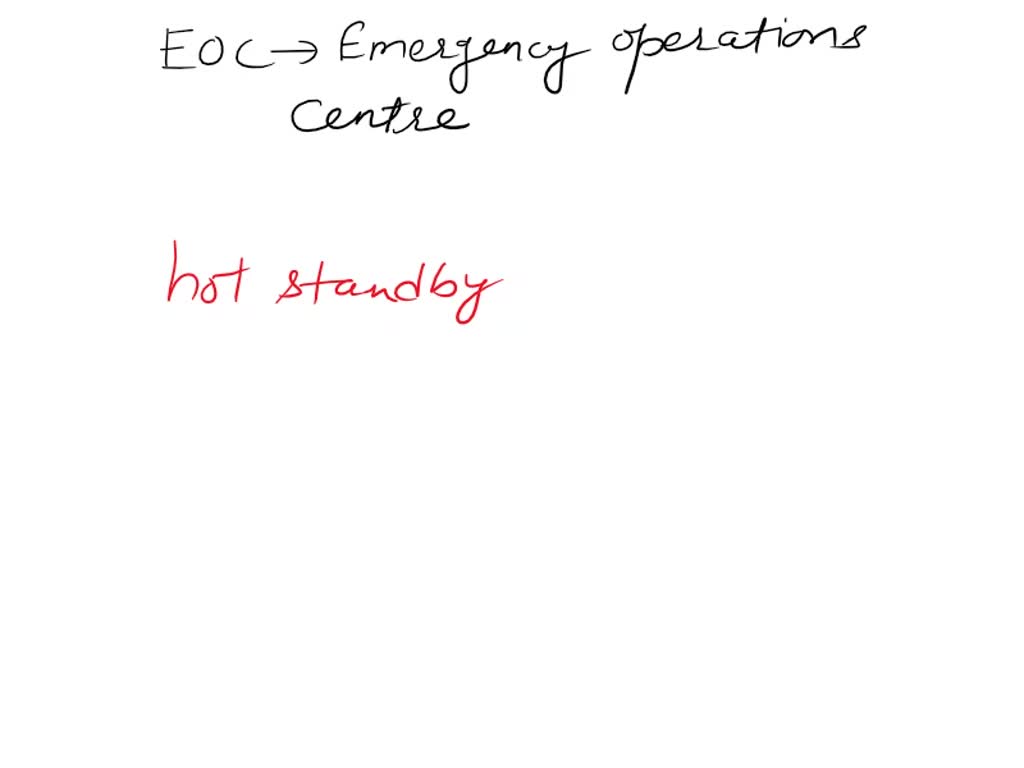 EOC → Emergency operations
Centre
hot standby